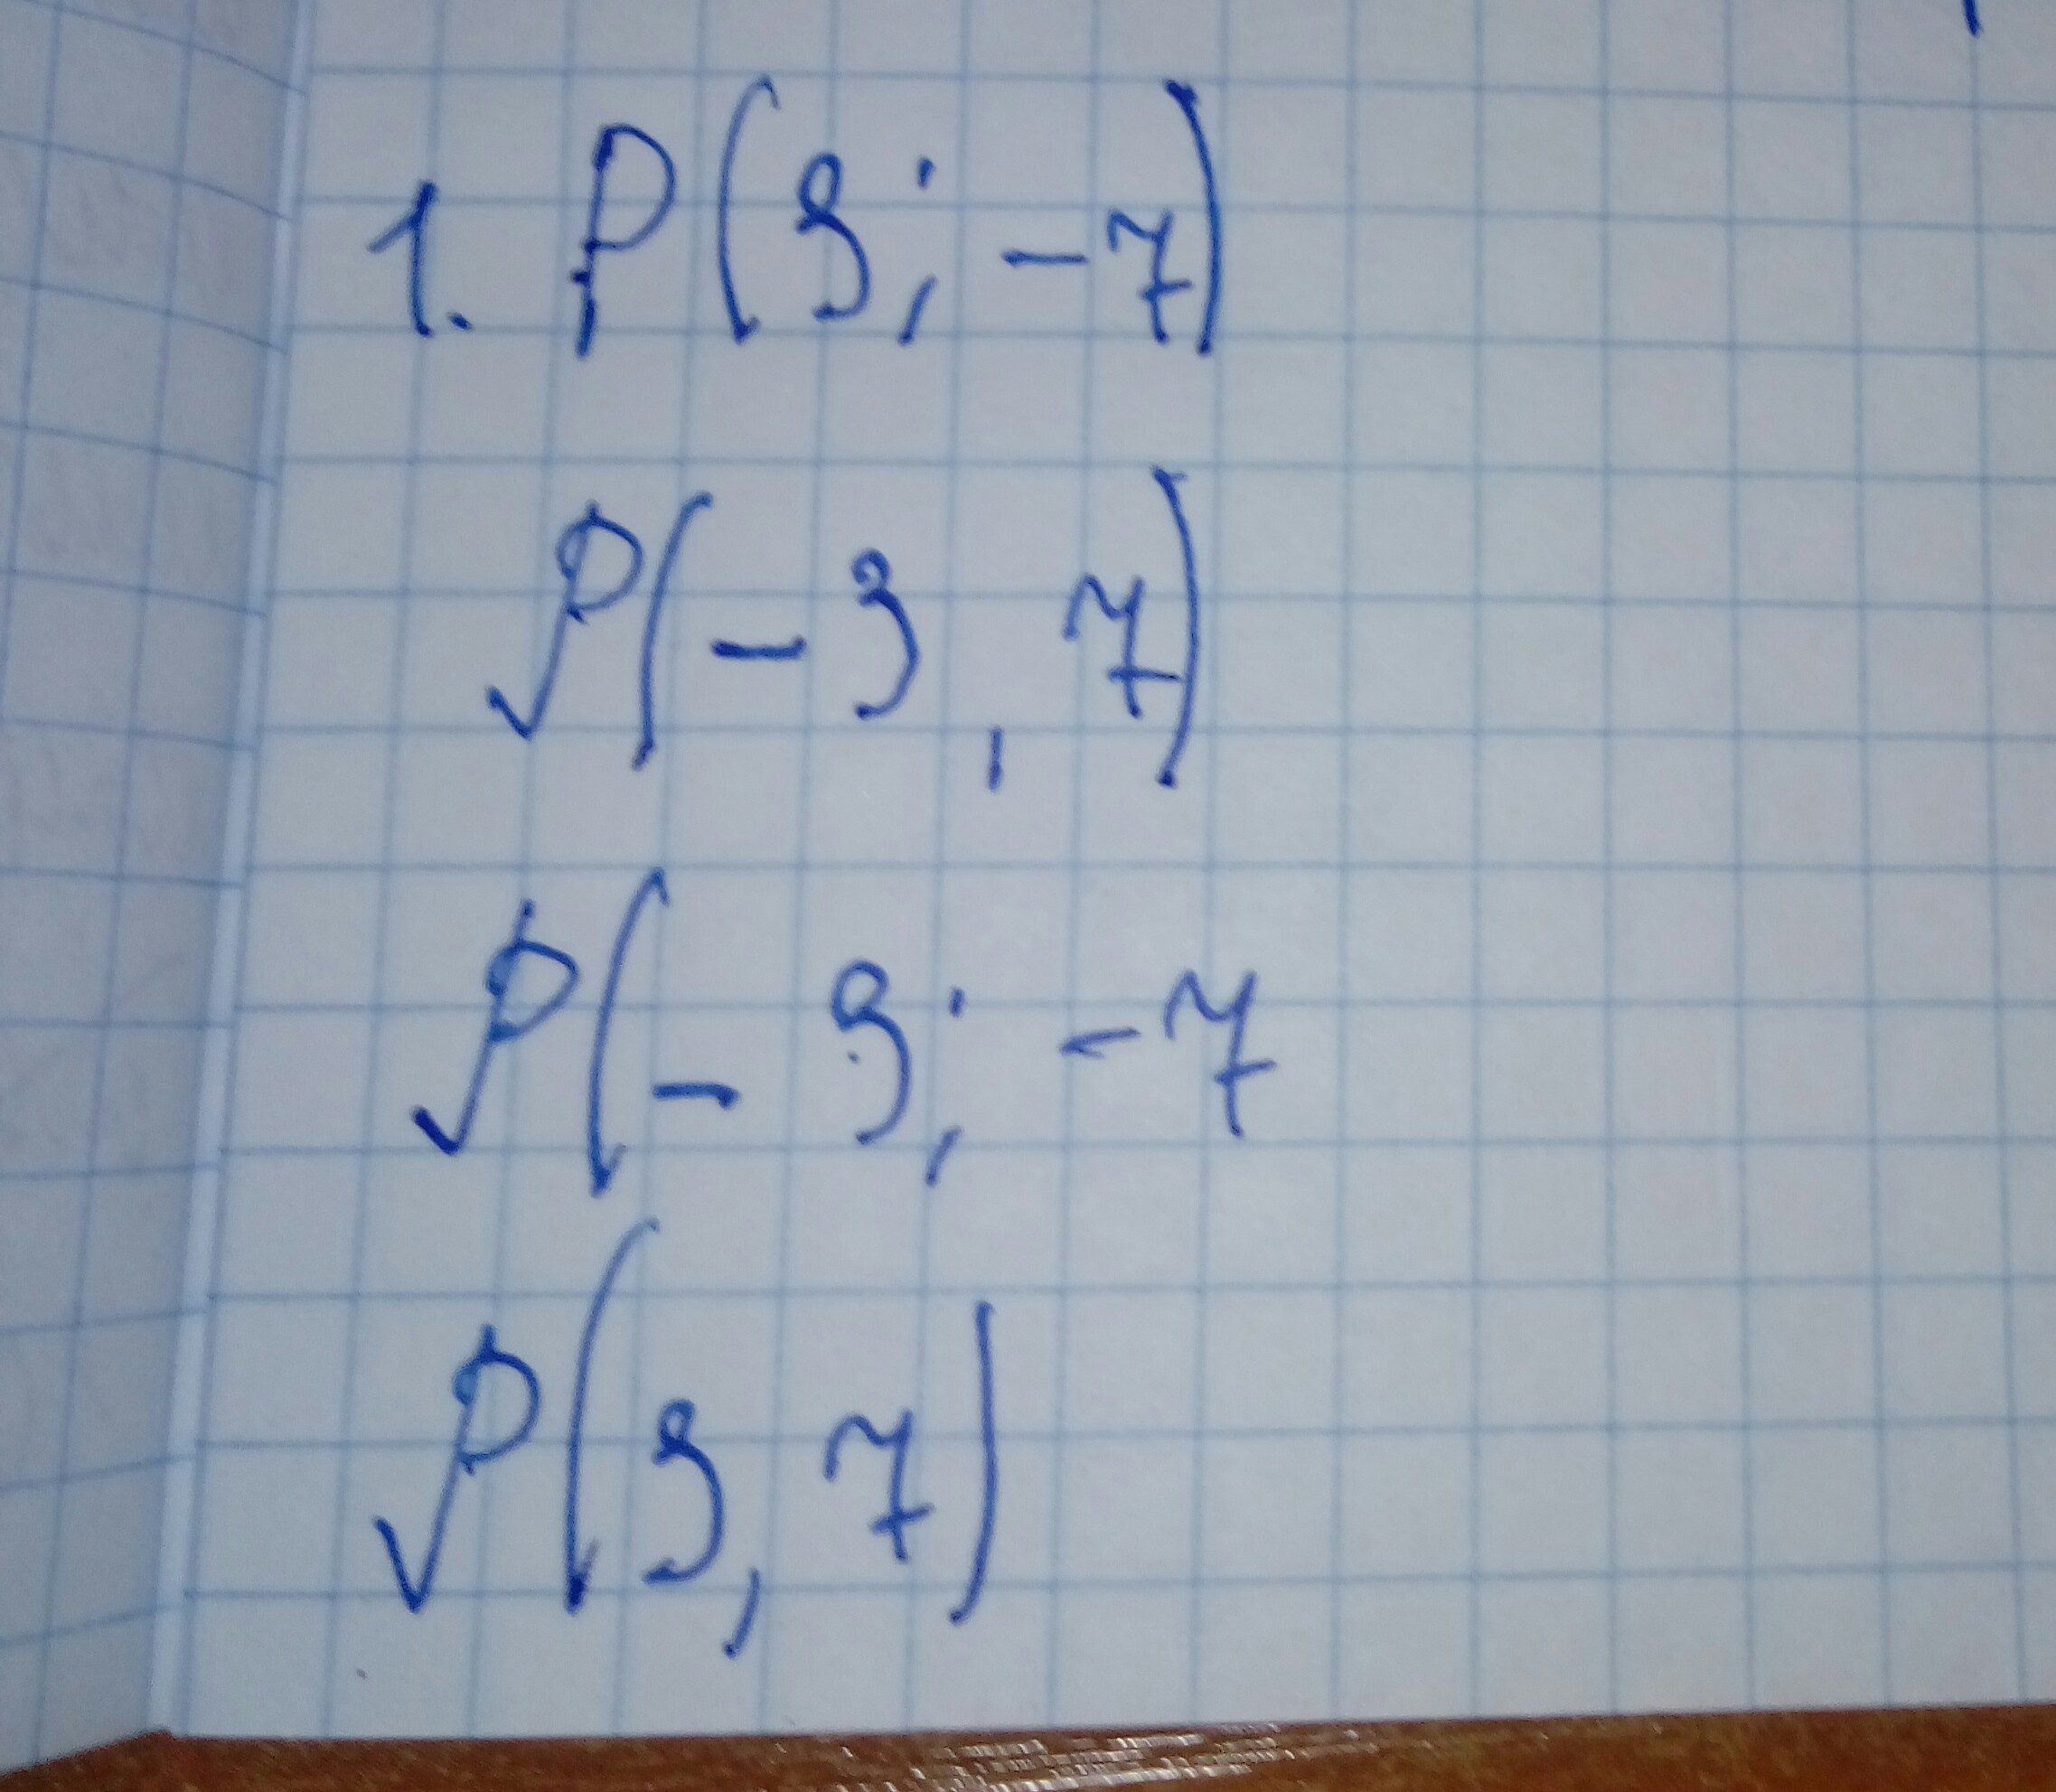 1. P(3; -7)
P(-3, 7)
P(-3; -7
P(3, 7)